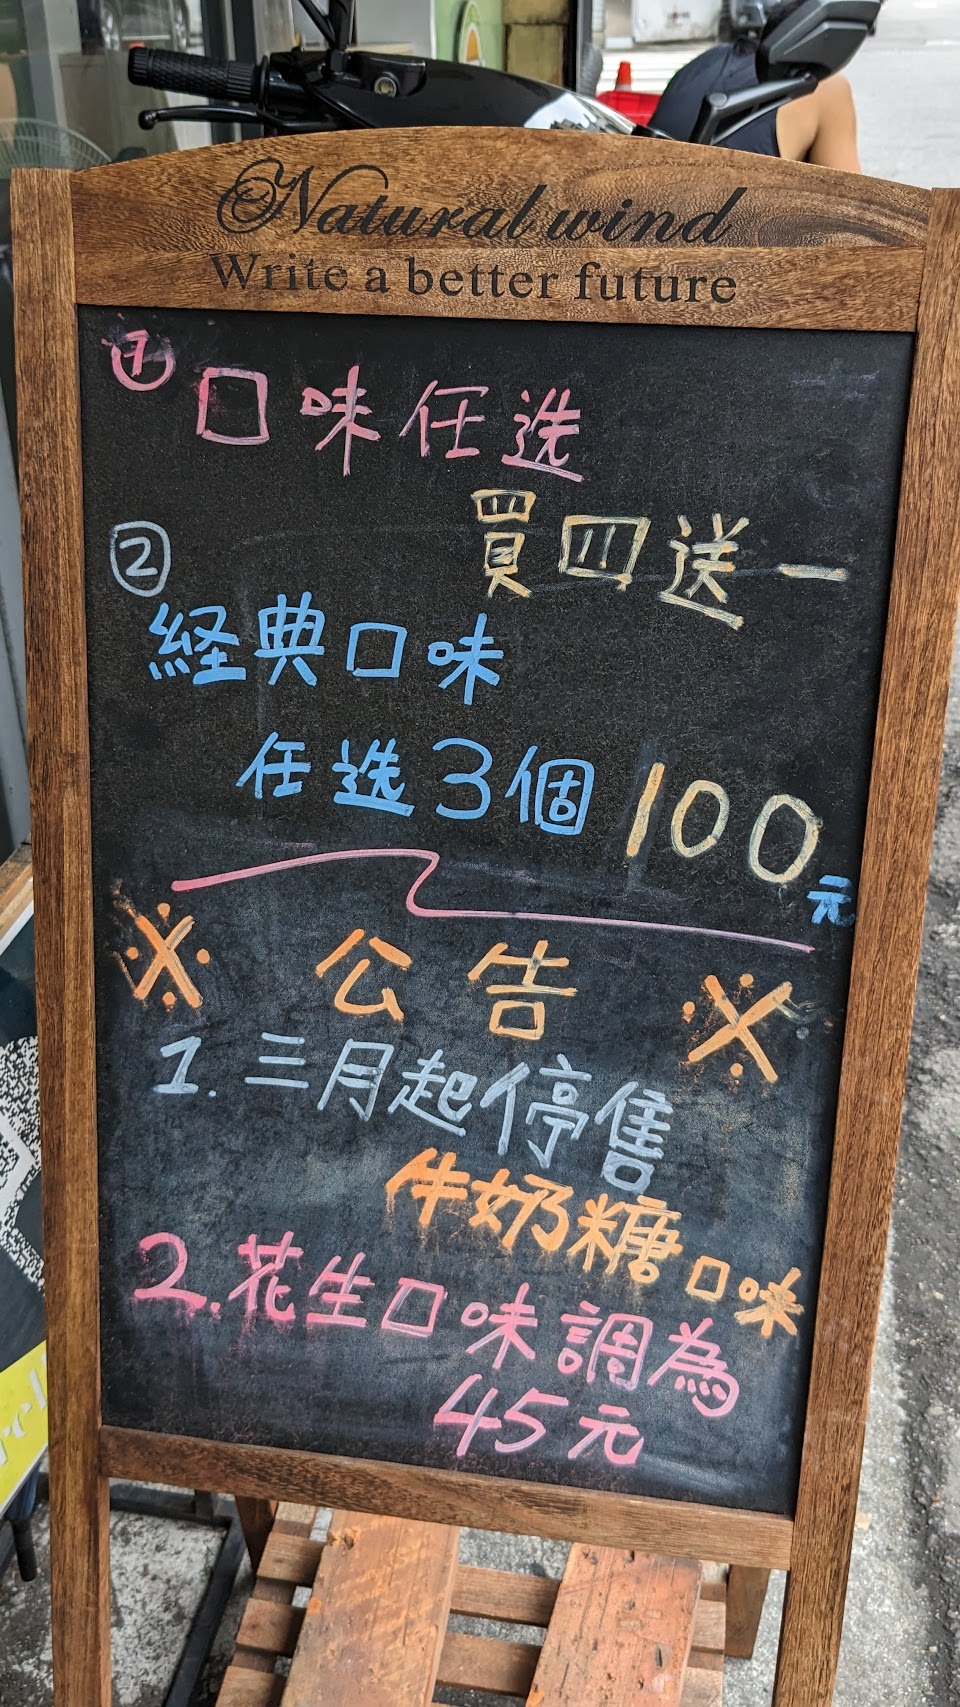 Natural wind
Write a better future
① 口味任选
買四送一
② 経典口味
任选3個100元
※公告※
1.三月起停售
牛奶糖口味
2.花生口味調為
45元